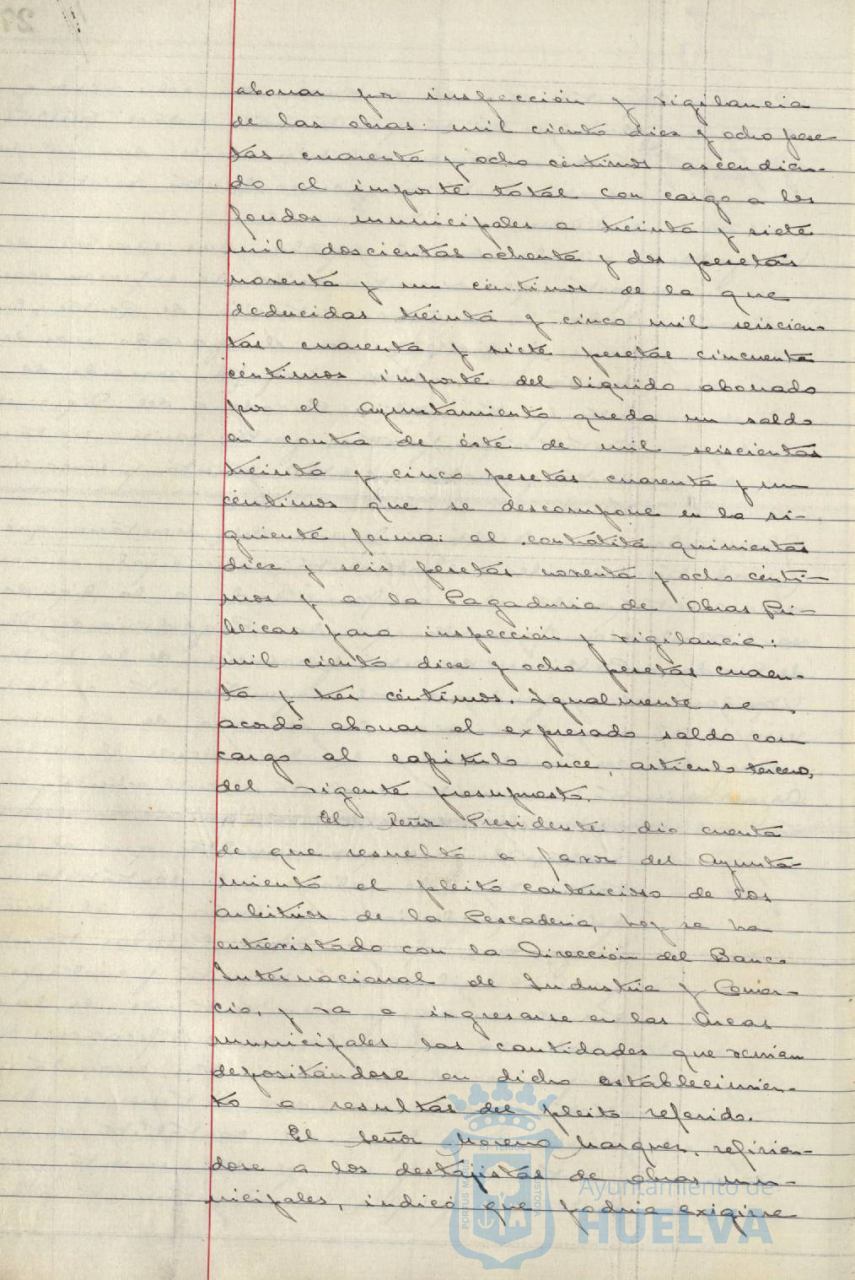 abonar por inspección y vigilancia
de las obras: mil ciento diez y ocho pese-
tas cuarenta y ocho céntimos ascendien-
do el importe total con cargo a los
fondos municipales a treinta y siete
mil doscientas ochenta y dos pesetas
noventa y un céntimos de la que
deducidas treinta y cinco mil seiscien-
tas cuarenta y siete pesetas cincuenta
céntimos importe del líquido abonado
por el Ayuntamiento queda un saldo
en contra de éste de mil seiscientas
treinta y cinco pesetas cuarenta y un
céntimos que se descompone en la si-
guiente forma: al contratita quinientas
diez y seis pesetas noventa y ocho cénti-
mos y a la Pagaduria de Obras Pú-
blicas para inspección y vigilancia:
mil ciento diez y ocho pesetas cuaren-
ta y tres céntimos. Igualmente se
acordó abonar el expresado saldo con
cargo al capítulo once, artículo tercero,
del vigente presupuesto.
El Señor Presidente dió cuenta
de que resuelto a favor del Ayunta-
miento el pleito contencioso de los
arbitrios de la Pescaderia, hoy se ha
entrevistado con la Dirección del Banco
Internacional de Industria y Comer-
cio, y va a ingresarse en las Arcas
municipales las cantidades que venían
depositándose en dicho establecimien-
to a resultas del pleito referido.
El Señor Moreno Marquez, refirien-
dose a los destajistas de obras mu-
nicipales, indicó que podria exigirse
Ayuntamiento de
HUELVA